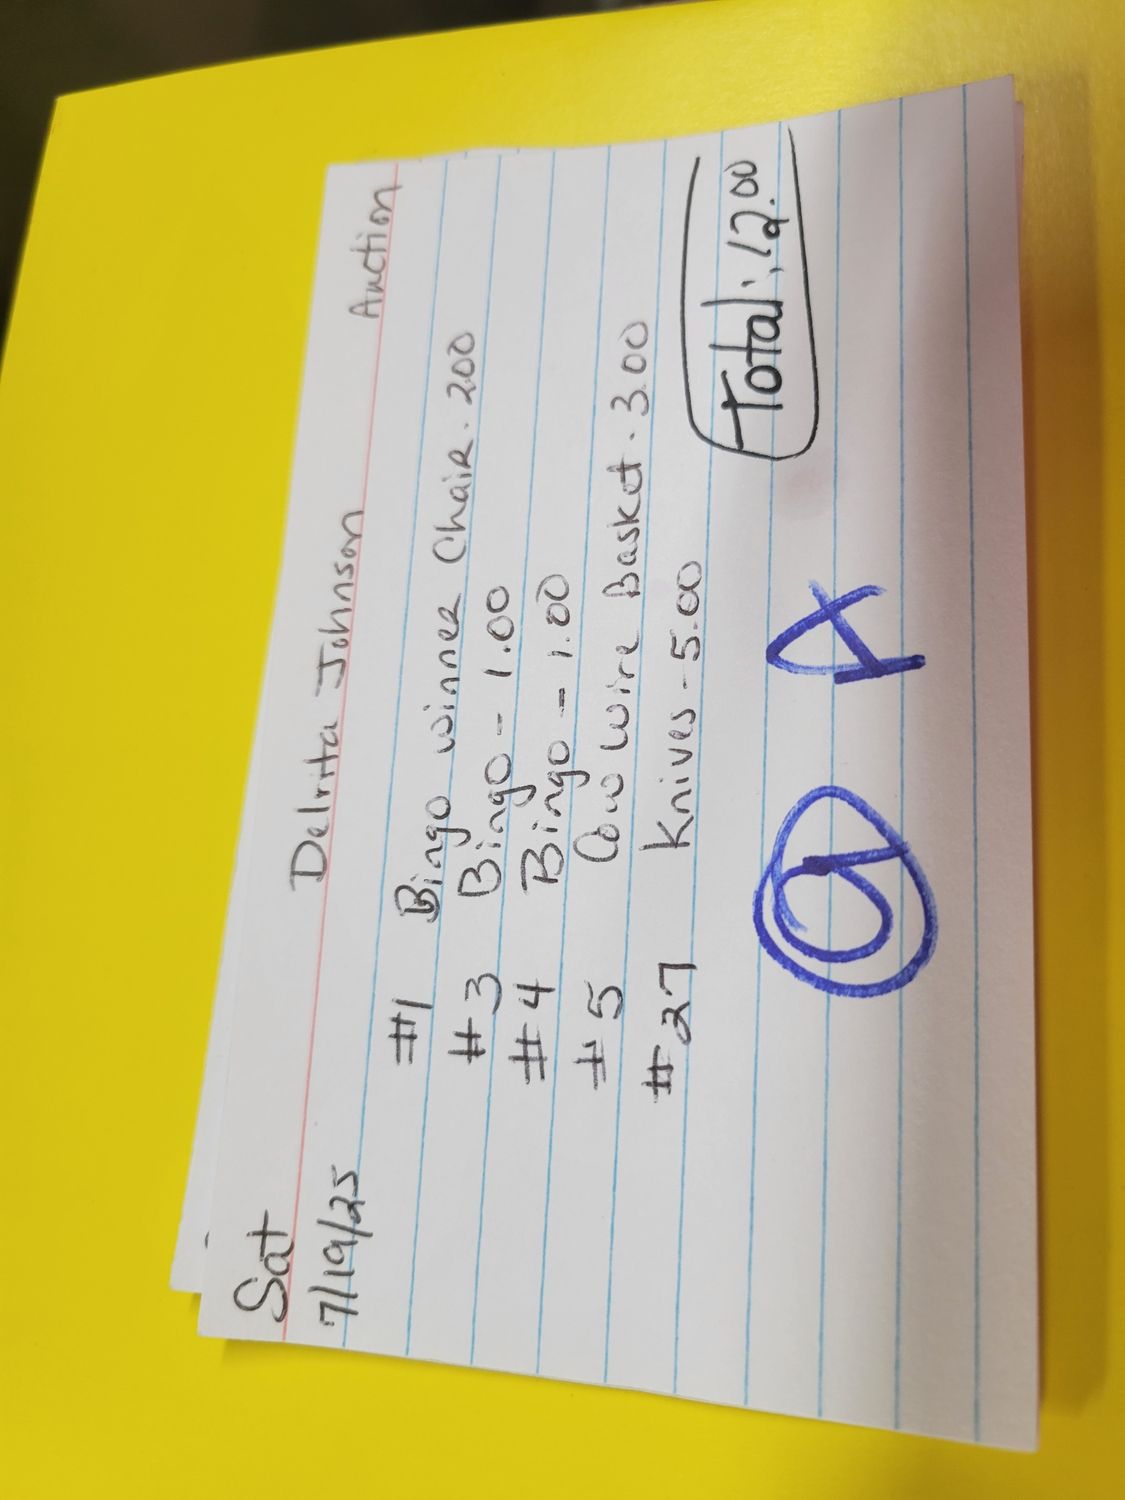 Sat
Delritta Johnson
Auction
7/19/25
#1 Bingo winner Chair. 2.00
#3 Bingo - 1.00
#4 Bingo - 1.00
#5 Cow Wire Basket. 3.00
#27 Knives - 5.00
Total: 12.00
A